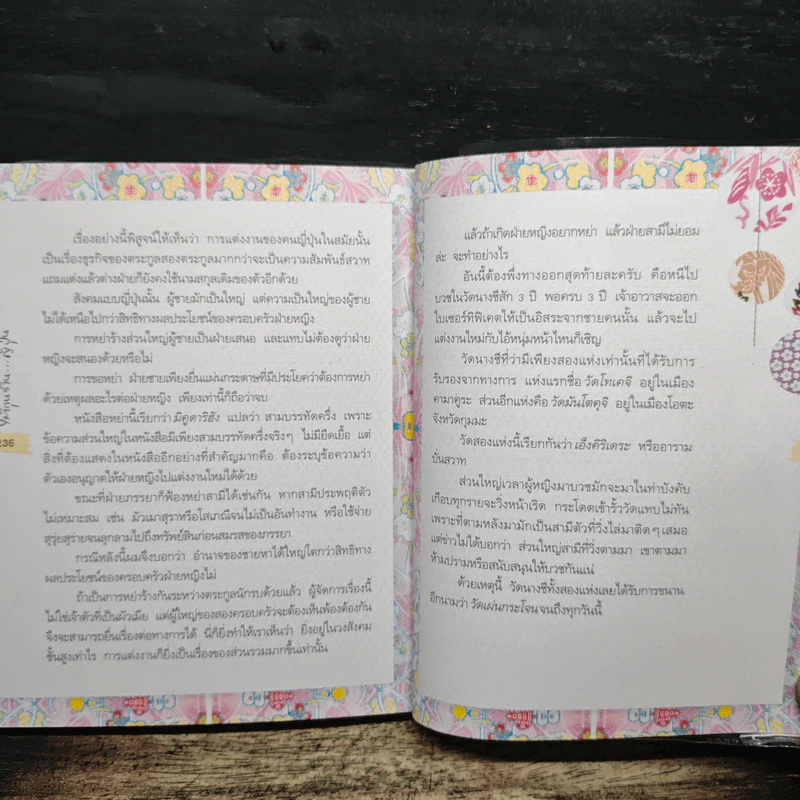 เรื่องอย่างนี้พิสูจน์ให้เห็นว่า การแต่งงานของคนญี่ปุ่นในสมัยนั้น
เป็นเรื่องธุรกิจของตระกูลสองตระกูลมากกว่าจะเป็นความสัมพันธ์สวาท
แถมแต่งแล้วต่างฝ่ายก็ยังคงใช้นามสกุลเดิมของตัวอีกด้วย
สังคมแบบญี่ปุ่นนั้น ผู้ชายมักเป็นใหญ่ แต่ความเป็นใหญ่ของผู้ชาย
ไม่ได้เหนือไปกว่าสิทธิทางผลประโยชน์ของครอบครัวฝ่ายหญิง
การหย่าร้างส่วนใหญ่ผู้ชายเป็นฝ่ายเสนอ และแทบไม่ต้องดูว่าฝ่าย
หญิงจะสนองด้วยหรือไม่
การขอหย่า ฝ่ายชายเพียงยื่นแผ่นกระดาษที่มีประโยคว่าต้องการหย่า
ด้วยเหตุผลอะไรต่อฝ่ายหญิง เพียงเท่านี้ก็ถือว่าจบ
หนังสือหย่านี้เรียกว่า มิคุดาริฮัง แปลว่า สามบรรทัดครึ่ง เพราะ
ข้อความส่วนใหญ่ในหนังสือมีเพียงสามบรรทัดครึ่งจริงๆ ไม่มียืดเยื้อ แต่
สิ่งที่ต้องแสดงในหนังสืออีกอย่างที่สำคัญมากคือ ต้องระบุข้อความว่า
ตัวเองอนุญาตให้ฝ่ายหญิงไปแต่งงานใหม่ได้ด้วย
ขณะที่ฝ่ายภรรยาก็ฟ้องหย่าสามีได้เช่นกัน หากสามีประพฤติตัว
ไม่เหมาะสม เช่น มัวเมาสุราหรือโสเภณีจนไม่เป็นอันทำงาน หรือใช้จ่าย
สุรุ่ยสุร่ายจนลุกลามไปถึงทรัพย์สินก่อนสมรสของภรรยา
กรณีหลังนี้ผมจึงบอกว่า อำนาจของชายหาได้ใหญ่โตกว่าสิทธิทาง
ผลประโยชน์ของครอบครัวฝ่ายหญิงไม่
ถ้าเป็นการหย่าร้างกันระหว่างตระกูลนักรบด้วยแล้ว ผู้จัดการเรื่องนี้
ไม่ใช่เจ้าตัวที่เป็นผัวเมีย แต่ผู้ใหญ่ของสองครอบครัวจะต้องเห็นพ้องต้องกัน
จึงจะสามารถยื่นเรื่องต่อทางการได้ นี่ก็ยิ่งทำให้เราเห็นว่า ยิ่งอยู่ในวงสังคม
ชั้นสูงเท่าไร การแต่งงานก็ยิ่งเป็นเรื่องของส่วนรวมมากขึ้นเท่านั้น
236
แล้วถ้าเกิดฝ่ายหญิงอยากหย่า แล้วฝ่ายสามีไม่ยอม
ล่ะ จะทำอย่างไร
อันนี้ต้องพึ่งทางออกสุดท้ายละครับ คือหนีไป
บวชในวัดนางชีสัก 3 ปี พอครบ 3 ปี เจ้าอาวาสจะออก
ใบเซอร์ทิฟิเคตให้เป็นอิสระจากชายคนนั้น แล้วจะไป
แต่งงานใหม่กับไอ้หนุ่มหน้าไหนก็เชิญ
วัดนางชีที่ว่ามีเพียงสองแห่งเท่านั้นที่ได้รับการ
รับรองจากทางการ แห่งแรกชื่อ วัดโทเคจิ อยู่ในเมือง
คามาคุระ ส่วนอีกแห่งคือ วัดมันโตคุจิ อยู่ในเมืองโอตะ
จังหวัดกุมมะ
วัดสองแห่งนี้เรียกกันว่า เอ็งคิริเดระ หรืออาราม
บั่นสวาท
ส่วนใหญ่เวลาผู้หญิงมาบวชมักจะมาในท่าบังคับ
เกือบทุกรายจะวิ่งหน้าเริด กระโดดเข้ารั้ววัดแทบไม่ทัน
เพราะที่ตามหลังมามักเป็นสามีตัวที่วิ่งไล่มาติดๆ เสมอ
แต่ข่าวไม่ได้บอกว่า ส่วนใหญ่สามีที่วิ่งตามมา เขาตามมา
ห้ามปรามหรือสนับสนุนให้บวชกันแน่
ด้วยเหตุนี้ วัดนางชีทั้งสองแห่งเลยได้รับการขนาน
อีกนามว่า วัดเผ่นกระโจน จนถึงทุกวันนี้